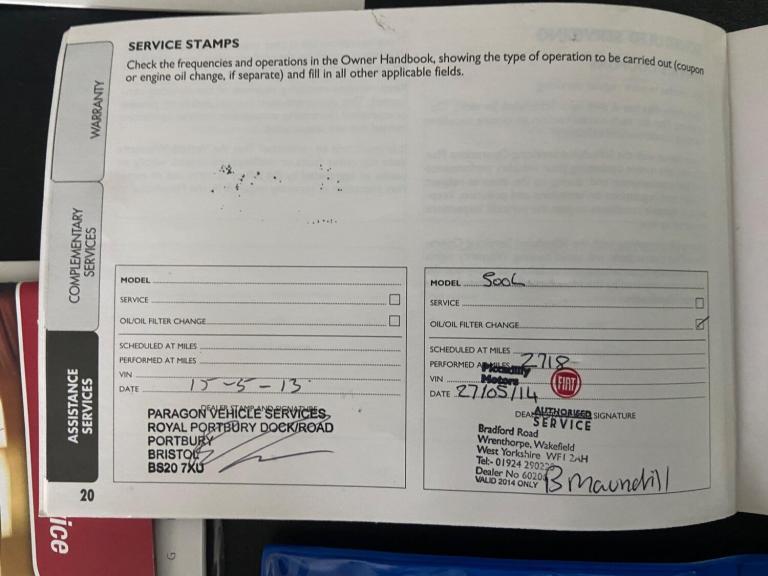 SERVICE STAMPS
Check the frequencies and operations in the Owner Handbook, showing the type of operation to be carried out (coupon
or engine oil change, if separate) and fill in all other applicable fields.
WARRANTY
COMPLEMENTARY
SERVICES
ASSISTANCE
SERVICES
MODEL
SERVICE
OIL/OIL FILTER CHANGE
SCHEDULED AT MILES
PERFORMED AT MILES
VIN
DATE 15-5-13
DEALER STAMP AND SIGNATURE
PARAGON VEHICLE SERVICES
ROYAL PORTBURY DOCK/ROAD
PORTBURY
BRISTOL
BS20 7XU
20
MODEL 500L
SERVICE
OIL/OIL FILTER CHANGE
SCHEDULED AT MILES
PERFORMED AT MILES 2718
Piccadilly
VIN Motors FIAT
DATE 27/05/14
AUTHORISED SIGNATURE
SERVICE
Bradford Road
Wrenthorpe, Wakefield
West Yorkshire WF1 2AH
Tel:- 01924 29022
Dealer No 6020
VALID 2014 ONLY
B Maundrill
ice
G